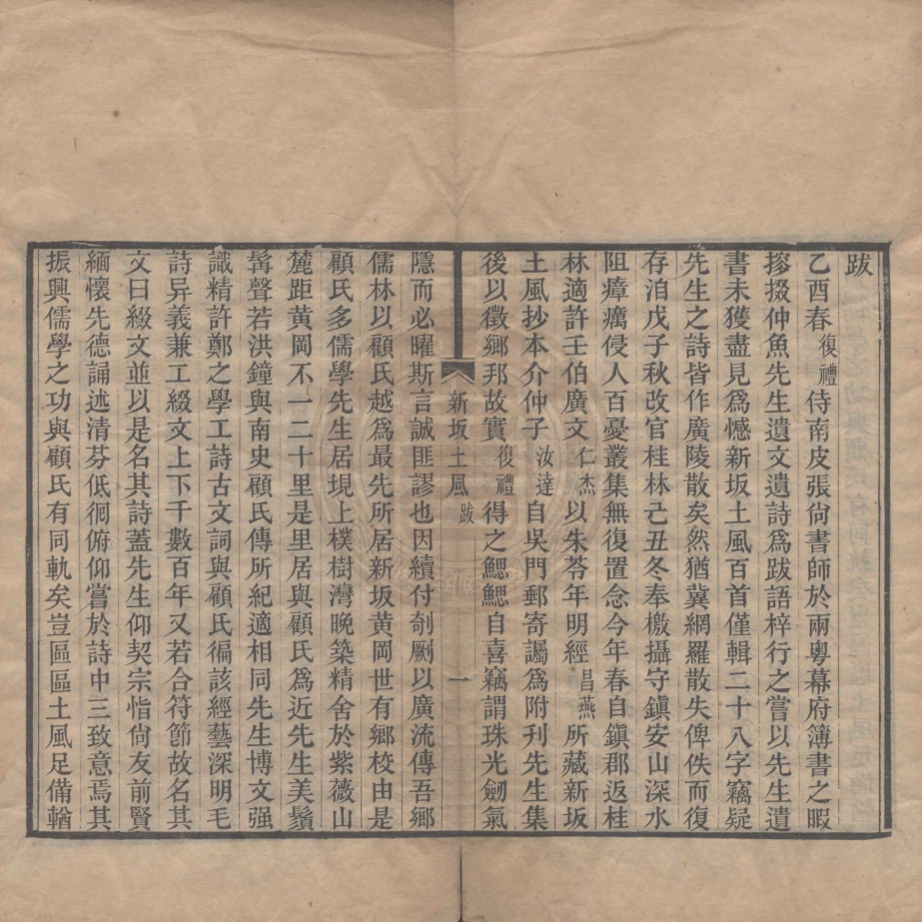 跋
乙酉春復禮侍南皮張尙書師於兩粵幕府簿書之暇
摉掇仲魚先生遺文遺詩爲跋語梓行之嘗以先生遺
書未獲盡見爲憾新坂土風百首僅輯二十八字竊疑
先生之詩皆作廣陵散矣然猶冀網羅散失俾佚而復
存洎戊子秋改官桂林己丑冬奉檄攝守鎭安山深水
阻瘴癘侵人百憂叢集無復置念今年春自鎭郡返桂
林適許壬伯廣文仁杰以朱苓年明經昌燕所藏新坂
土風抄本介仲子汝達自吳門郵寄谒爲附刊先生集
後以徵鄉邦故實復禮得之鰓鰓自喜竊謂珠光劒氣
新坂土風 跋 一
隱而必曜斯言誠匪謬也因續付剞劂以廣流傳吾鄉
儒林以顧氏越爲最先所居新坂黃岡世有鄉校由是
顧氏多儒學先生居垷上樸樹灣晚築精舍於紫薇山
麓距黃岡不一二十里是里居與顧氏爲近先生美鬚
髯聲若洪鐘與南史顧氏傳所紀適相同先生博文强
識精許鄭之學工詩古文詞與顧氏徧該經藝深明毛
詩异義兼工綴文上下千數百年又若合符節故名其
文曰綴文並以是名其詩蓋先生仰契宗恉尙友前賢
緬懷先德誦述清芬低徊俯仰嘗於詩中三致意焉其
振興儒學之功與顧氏有同軌矣豈區區土風足備輶